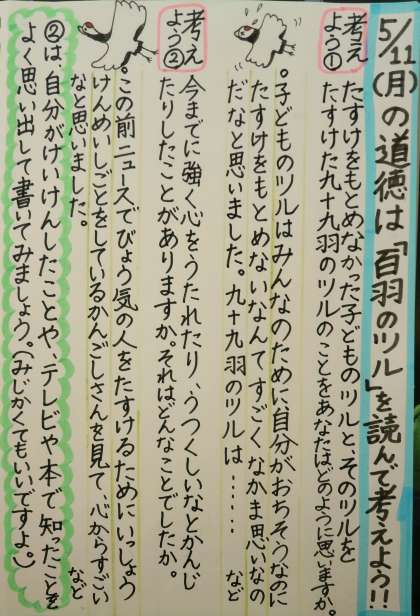 5/11(月)の道徳は「百羽のツル」を読んで考えよう!!
考えよう①
たすけをもとめなかった子どものツルと、そのツルを
たすけた九十九羽のツルのことをあなたはどのように思いますか。
。子どものツルはみんなのために、自分がおちそうなのに
たすけをもとめないなんてすごくなかま思いなの
だなと思いました。九十九羽のツルは…… など
考えよう②
今までに強く心をうたれたり、うつくしいなとかんじ
たりしたことがありますか。それはどんなことでしたか。
。この前ニュースでびょう気の人をたすけるためにいっしょう
けんめいしごとをしているかんごしさんを見て、心からすごい
なと思いました。 など
②は、自分がけいけんしたことや、テレビや本で知ったことを
よく思い出して書いてみましょう。(みじかくてもいいですよ。)